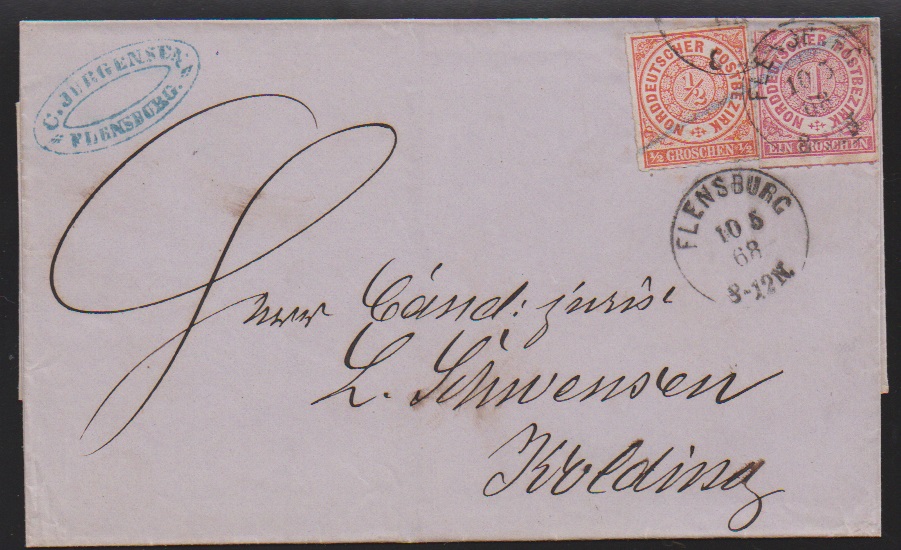 C. JÜRGENSEN.
FLENSBURG.
NORDDEUTSCHER POSTBEZIRK
1/2
1/2 GROSCHEN 1/2
NORDDEUTSCHER POSTBEZIRK
1
EIN GROSCHEN
FLENSBURG
10 5
68
8-12 N.
Herr Cand: juris:
L. Schwensen
Kolding